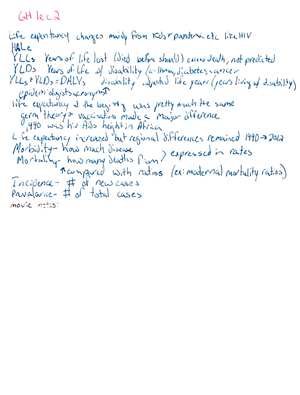 GH lec 2
Life expectancy changes mainly from kids & pandemic etc like HIV
HALE
YLLs Years of life lost (died before should) excess death, not predicted
YLDs Years of life w/ disability asthma, diabetes, cancer
YLLs+YLDs=DALYs disability adjusted life years (years living w/ disability)
epidemiologists acronym
life expectancy @ the beginning was pretty much the same
germ theory & vaccination made a major difference
1990 was HIV AIDs height in Africa
Life expectancy increased but regional differences remained 1990→2012
Morbidity- how much disease
Mortality- how many deaths from > expressed in rates
↑compared with ratios (ex: maternal mortality ratios)
Incidence- # of new cases
Prevalance- # of total cases
movie notes: